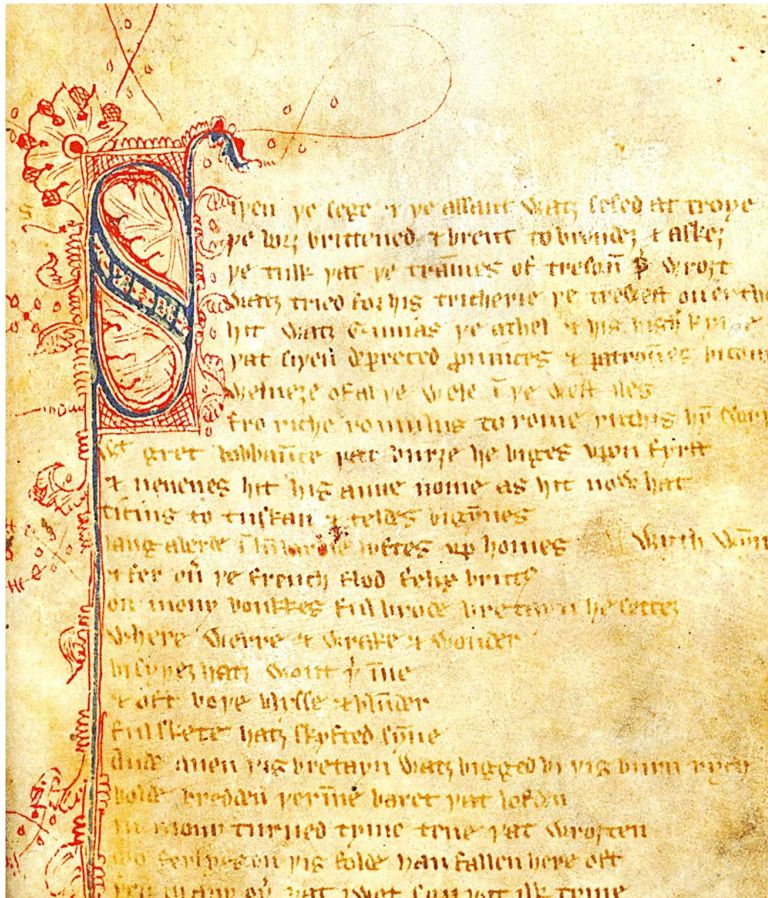 Siþen þe sege & þe assaut watȝ sesed at troye
þe borȝ brittened & brent to brondeȝ & askeȝ
þe tulk þat þe trāmes of tresoū þ̉ wroȝt
watȝ tried for his tricherie þe trewest on erthe
hit watȝ Ennias þe athel & his highe kynde
þat siþen depreced prouinces & patroūes bicom
welneȝe of al þe wele ī þe west iles
fro riche romulus to rome ricchis hȳ swy
wt gret bobbaūce þat burȝe he biges vpon fyrst
& neuenes hit his aune nome as hit now hat
ticius to tuskan & teldes bigȳnes
langaberde ī lūbardie lyftes vp homes wyth wȳn
& fer oū þe french flod felix brutꝰ
on mony bonkkes ful brode bretayn he setteȝ
where werre & wrake & wonder
bi syþeȝ hatȝ wont þ̉ īne
& oft boþe blysse & blūder
ful skete hatȝ skyfted sȳne
Ande quen þis bretayn watȝ bigged bi þis burn rych
bolde bredden þerīne baret þat lofden
in mony turned tyme tene þat wroȝten
mo ferlyes on þis folde han fallen here oft
þen in any oþ̉ þat I wot syn þat ilk tyme